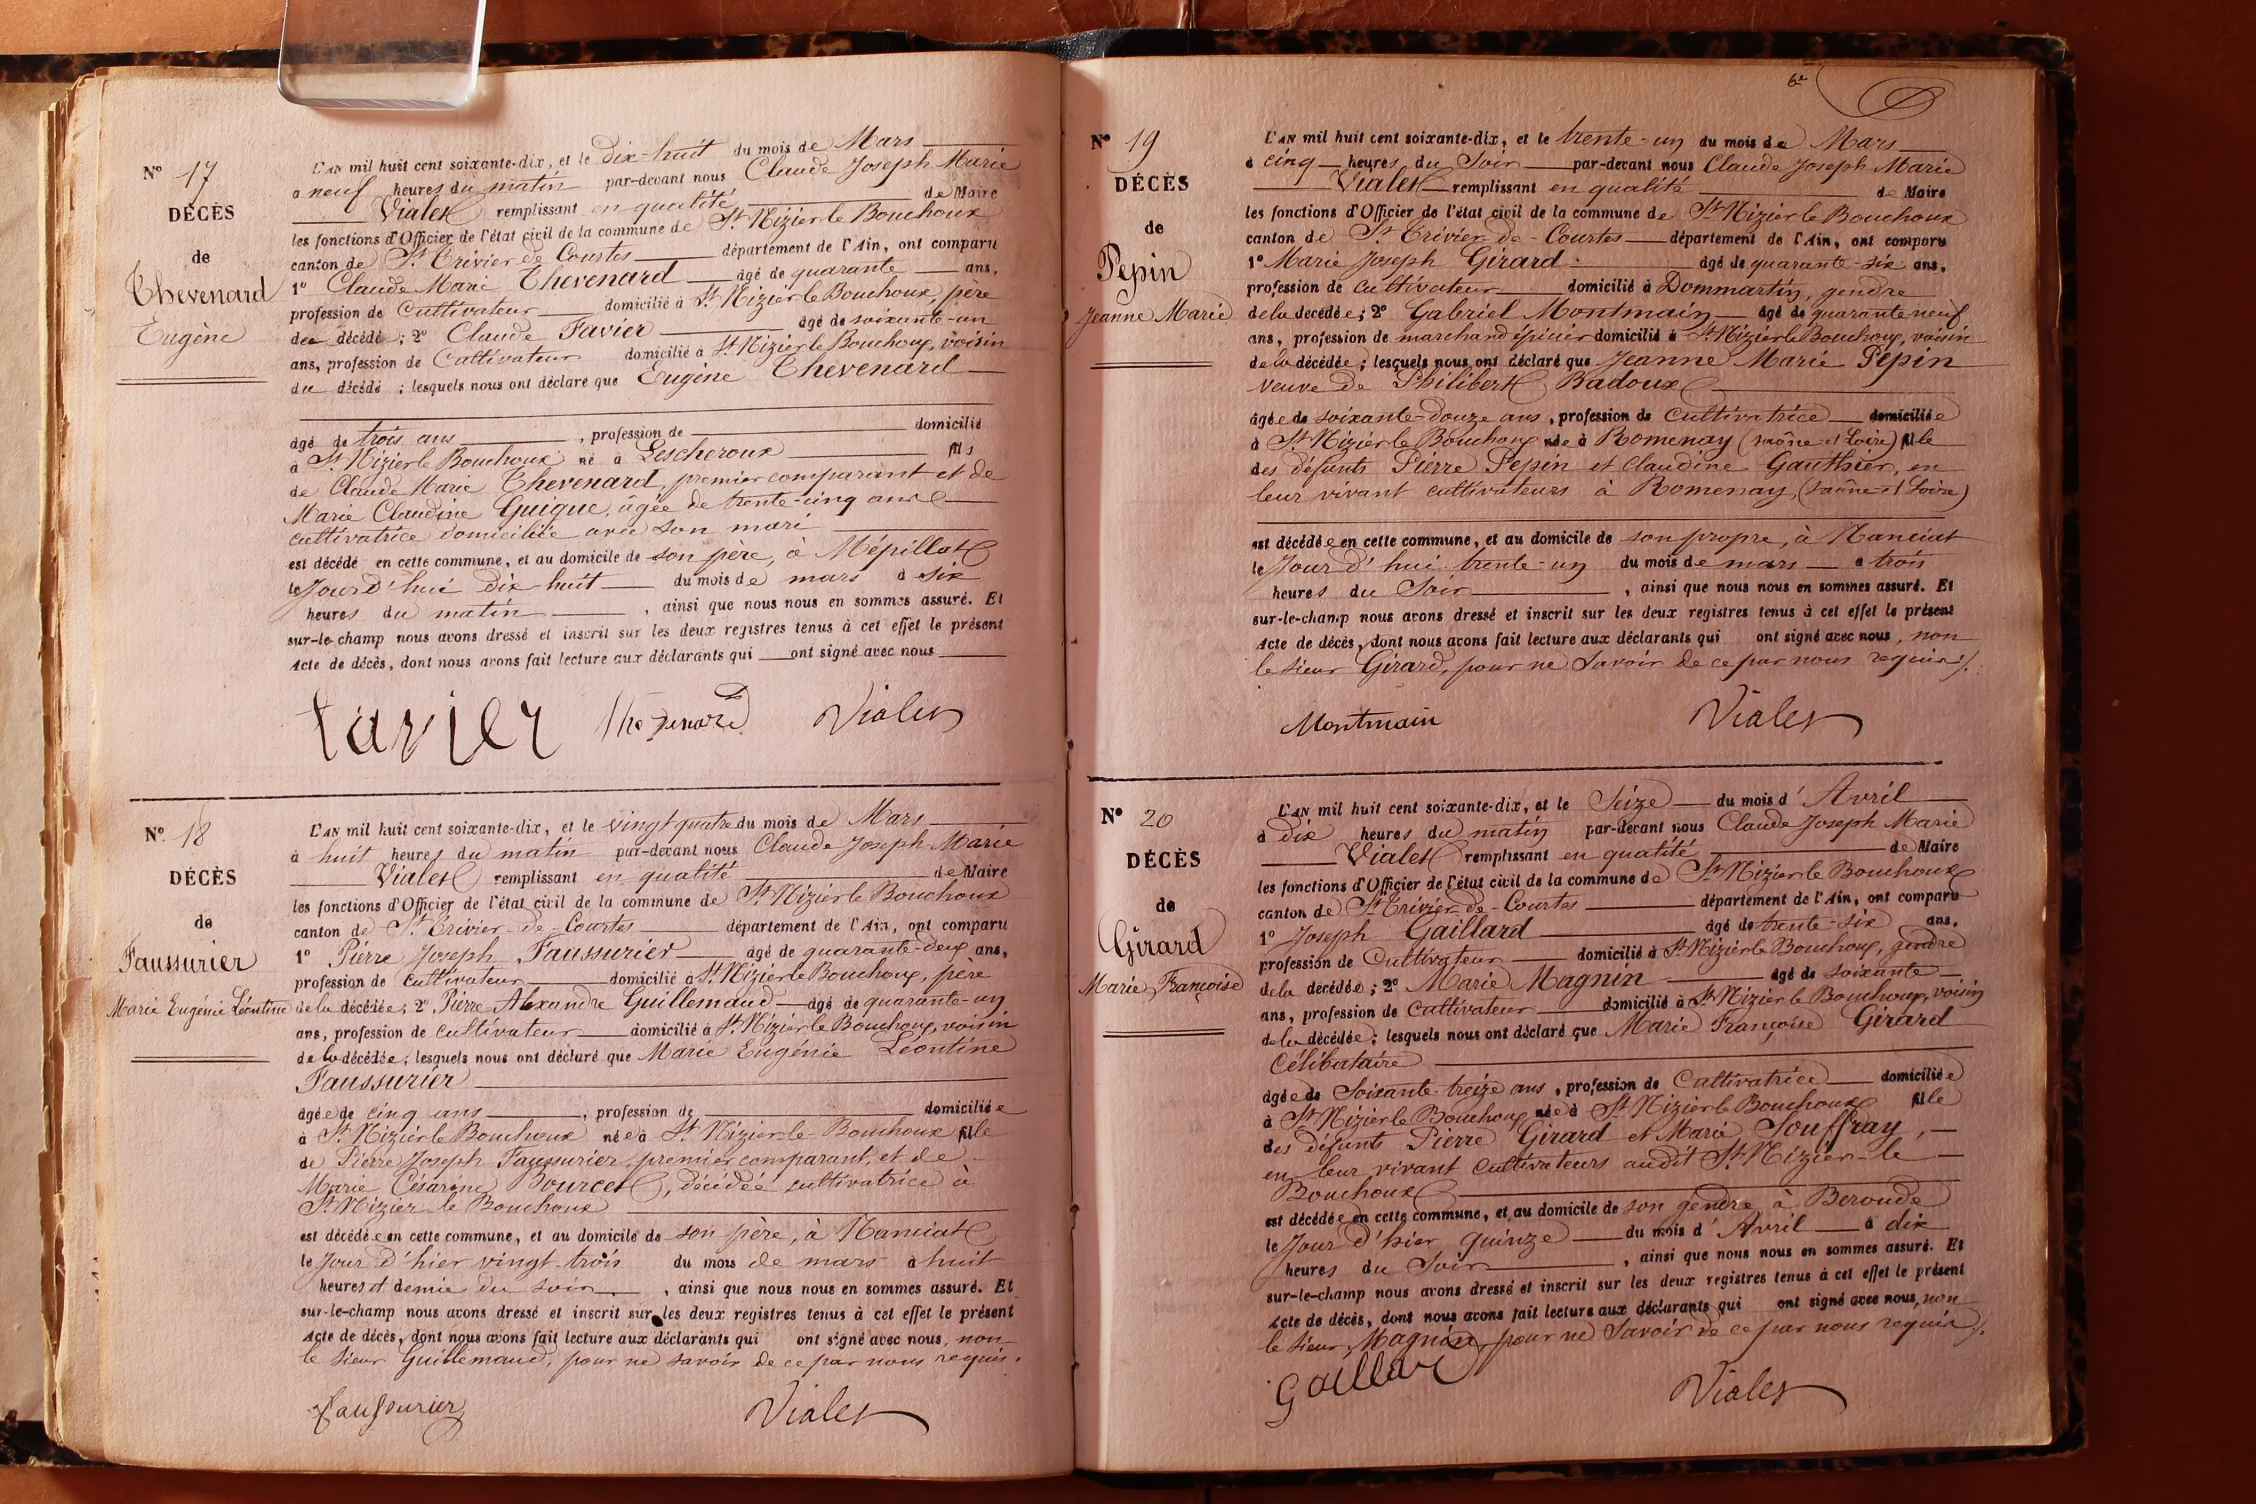 N° 17
DÉCÈS
de
Thevenard
Eugène
L'AN mil huit cent soixante-dix, et le dix-huit du mois de Mars
à neuf heures du matin par-devant nous Claude Joseph Marie
Vialet remplissant en qualité de Maire
les fonctions d'Officier de l'état civil de la commune de St Nizier le Bouchoux
canton de St Trivier de Courtes département de l'Ain, ont comparu
1° Claude Marie Thevenard âgé de quarante ans,
profession de Cultivateur domicilié à St Nizier le Bouchoux, père
du décédé ; 2° Claude Favier âgé de soixante-un
ans, profession de Cultivateur domicilié à St Nizier le Bouchoux, voisin
du décédé ; lesquels nous ont déclaré que Eugène Thevenard
âgé de trois ans, profession de domicilié
à St Nizier le Bouchoux né à Lescheroux fils
de Claude Marie Thevenard, premier comparant et de
Marie Claudine Guigue, âgée de trente-cinq ans
cultivatrice domiciliée avec son mari
est décédé en cette commune, et au domicile de son père, à Mépillat
le Jourd'hui dix-huit du mois de mars à six
heures du matin, ainsi que nous nous en sommes assuré. Et
sur-le-champ nous avons dressé et inscrit sur les deux registres tenus à cet effet le présent
Acte de décès, dont nous avons fait lecture aux déclarants qui ont signé avec nous
favier Thevenard Vialet
N° 18
DÉCÈS
de
Faussurier
Marie Eugénie Léontine
L'AN mil huit cent soixante-dix, et le vingt quatre du mois de Mars
à huit heures du matin par-devant nous Claude Joseph Marie
Vialet remplissant en qualité de Maire
les fonctions d'Officier de l'état civil de la commune de St Nizier le Bouchoux
canton de St Trivier-de-Courtes département de l'Ain, ont comparu
1° Pierre Joseph Faussurier âgé de quarante-deux ans,
profession de Cultivateur domicilié à St Nizier le Bouchoux, père
de la décédée ; 2° Pierre Alexandre Guillemaud âgé de quarante-un
ans, profession de Cultivateur domicilié à St Nizier le Bouchoux, voisin
de la décédée ; lesquels nous ont déclaré que Marie Eugénie Léontine
Faussurier
âgée de cinq ans, profession de domiciliée
à St Nizier le Bouchoux née à St Nizier-le Bouchoux fille
de Pierre Joseph Faussurier, premier comparant, et de
Marie Césarine Bourcet, décédée cultivatrice à
St Nizier le Bouchoux
est décédée en cette commune, et au domicile de son père, à Nanciat
le Jour d'hier vingt-trois du mois de mars à huit
heures et demie du soir, ainsi que nous nous en sommes assuré. Et
sur-le-champ nous avons dressé et inscrit sur les deux registres tenus à cet effet le présent
Acte de décès, dont nous avons fait lecture aux déclarants qui ont signé avec nous, non
le sieur Guillemaud, pour ne savoir de ce par nous requis.
faussurier Vialet
6e
N° 19
DÉCÈS
de
Pepin
Jeanne Marie
L'AN mil huit cent soixante-dix, et le trente-un du mois de Mars
à cinq heures du Soir par-devant nous Claude Joseph Marie
Vialet remplissant en qualité de Maire
les fonctions d'Officier de l'état civil de la commune de St Nizier le Bouchoux
canton de St Trivier-de-Courtes département de l'Ain, ont comparu
1° Marie Joseph Girard âgé de quarante-six ans,
profession de Cultivateur domicilié à Dommartin, gendre
de la décédée ; 2° Gabriel Montmain âgé de quarante neuf
ans, profession de marchand épicier domicilié à St Nizier le Bouchoux, voisin
de la décédée ; lesquels nous ont déclaré que Jeanne Marie Pepin
veuve de Philibert Badoux
âgée de soixante-douze ans, profession de Cultivatrice domiciliée
à St Nizier le Bouchoux née à Romenay (saône et Loire) fille
des défunts Pierre Pepin et Claudine Gauthier, en
leur vivant cultivateurs à Romenay (saône et Loire)
est décédée en cette commune, et au domicile de son propre, à Nanciat
le Jour d'hui trente-un du mois de mars à trois
heures du Soir, ainsi que nous nous en sommes assuré. Et
sur-le-champ nous avons dressé et inscrit sur les deux registres tenus à cet effet le présent
Acte de décès, dont nous avons fait lecture aux déclarants qui ont signé avec nous, non
le sieur Girard, pour ne savoir de ce par nous requis.
Montmain Vialet
N° 20
DÉCÈS
de
Girard
Marie Françoise
L'AN mil huit cent soixante-dix, et le Seize du mois d'Avril
à dix heures du matin par-devant nous Claude Joseph Marie
Vialet remplissant en qualité de Maire
les fonctions d'Officier de l'état civil de la commune de St Nizier le Bouchoux
canton de St Trivier-de-Courtes département de l'Ain, ont comparu
1° Joseph Gaillard âgé de trente-six ans,
profession de Cultivateur domicilié à St Nizier le Bouchoux, gendre
de la décédée ; 2° Marie Magnin âgé de soixante
ans, profession de Cultivateur domicilié à St Nizier le Bouchoux, voisin
de la décédée ; lesquels nous ont déclaré que Marie Françoise Girard
Célibataire
âgée de Soixante-treize ans, profession de Cultivatrice domiciliée
à St Nizier le Bouchoux née à St Nizier le Bouchoux fille
des défunts Pierre Girard et Marie Souffray,
en leur vivant Cultivateurs audit St Nizier-le
Bouchoux
est décédée en cette commune, et au domicile de son gendre à Beroude
le Jour d'hier quinze du mois d'Avril à dix
heures du Soir, ainsi que nous nous en sommes assuré. Et
sur-le-champ nous avons dressé et inscrit sur les deux registres tenus à cet effet le présent
Acte de décès, dont nous avons fait lecture aux déclarants qui ont signé avec nous, non
le sieur Magnin, pour ne Savoir de ce par nous requis.
Gaillard Vialet